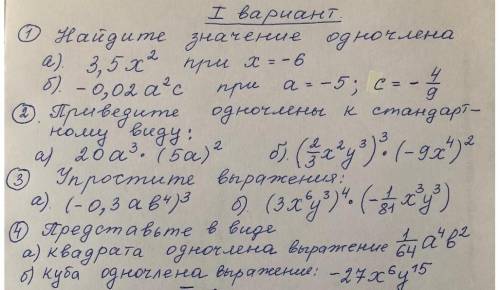 I вариант.
① Найдите значение одночлена
а). 3,5x² при x = -6
б). -0,02a²c при a = -5; c = -4/9
② Приведите одночлены к стандарт-
ному виду:
а) 20a³ · (5a)² б). (2/3x²y³)³ · (-9x⁴)²
③ Упростите выражения:
а). (-0,3ab⁴)³ б) (3x⁶y³)⁴ · (-1/81x³y³)
④ Представьте в виде
а) квадрата одночлена выражение 1/64a⁴b²
б) куба одночлена выражение: -27x⁶y¹⁵